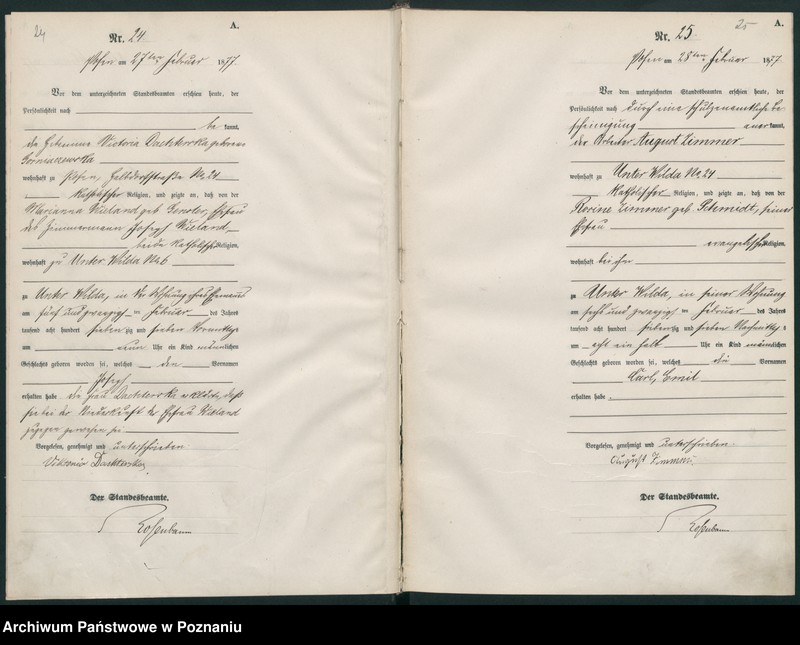 24
A.
Nr. 24
Posen am 27ten Februar 1877.
Vor dem unterzeichneten Standesbeamten erschien heute, der
Persönlichkeit nach
be kannt,
die Hebamme Victoria Dachterska geborene
wohnhaft zu Posen, Halbdorfstraße No 24
katholischer Religion, und zeigte an, daß von der
Marianna Wieland geb. Ehefrau
des Zimmermann Joseph Wieland,
beide katholischer Religion,
wohnhaft zu Unter Wilda No 6
zu Unter Wilda, in der Wohnung ihres Ehemanns
am fünf und zwanzigsten Februar des Jahres
tausend acht hundert siebenzig und sieben Vormittags
um neun Uhr ein Kind männlichen
Geschlechts geboren worden sei, welches den Vornamen
Joseph
erhalten habe. die Frau Dachterska erklärte, daß
sie bei der Niederkunft der Ehefrau Wieland
zugegen gewesen sei
Vorgelesen, genehmigt und unterschrieben
Dachterska
Der Standesbeamte.
Rosenbaum
25
A.
Nr. 25
Posen am 28ten Februar 1877.
Vor dem unterzeichneten Standesbeamten erschien heute, der
Persönlichkeit nach durch eine schulzenamtliche Be
scheinigung anerkannt,
der Arbeiter August Zimmer
wohnhaft zu Unter Wilda No 24
katholischer Religion, und zeigte an, daß von der
Rosine Zimmer geb. Schmidt, seiner
Ehefrau
evangelischer Religion,
wohnhaft bei ihm
zu Unter Wilda, in seiner Wohnung
am sechs und zwanzigsten Februar des Jahres
tausend acht hundert siebenzig und sieben Nachmittags
um acht ein halb Uhr ein Kind männlichen
Geschlechts geboren worden sei, welches die Vornamen
Carl, Emil
erhalten habe.
Vorgelesen, genehmigt und unterschrieben
August Zimmer
Der Standesbeamte.
Rosenbaum
Archiwum Państwowe w Poznaniu